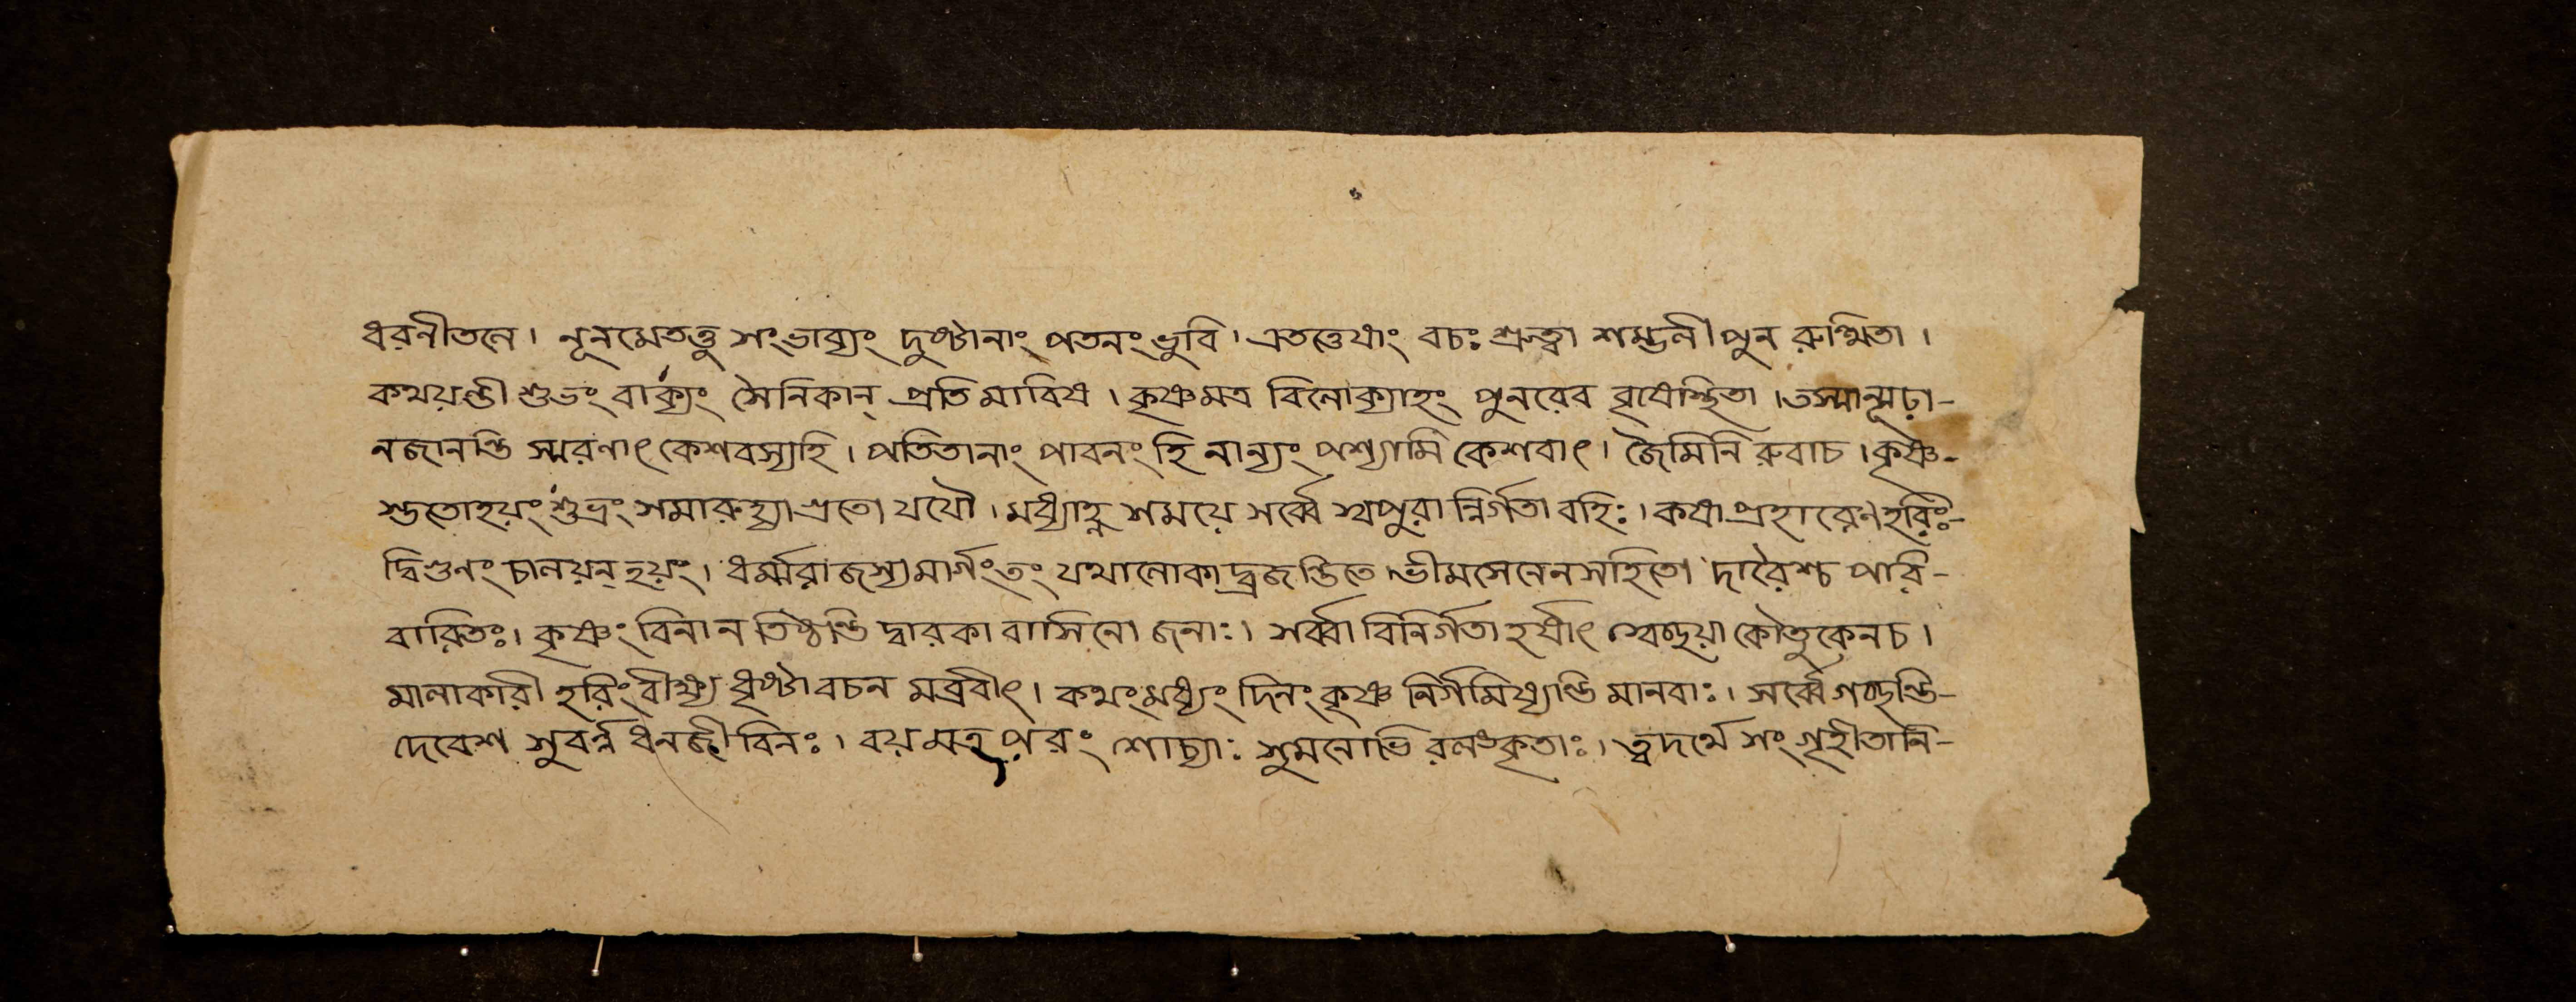 ধরনীতলে। নূনমেতত্তু সংভাব্যং দুষ্টানাং পতনং ভুবি। এতত্তেষাং বচঃ শ্রুত্বা শম্ভলী পুন রুত্থিতা।
কথয়ন্তী শুভং বাক্যং সৈনিকান্ প্রতি মারিষ। কৃষ্ণমত্র বিলোক্যাহং পুনরেব বৃষেস্থিতা। তস্মান্মূঢ়া-
নজানন্তি স্মরণাৎ কেশবস্যহি। পতিতানাং পাবনং হি নান্যং পশ্যামি কেশবাৎ। জৈমিনি রুবাচ। কৃষ্ণ-
স্ততোহয়ং শুভ্রং সমারুহ্যাগ্রতো যযৌ। মধ্যাহ্ন শময়ে সর্ব্বে স্বপুরা ন্নির্গতা বহিঃ। কষাপ্রহারেণ হরিঃ-
দ্বিগুনং চালয়ন্ হয়ং। ধর্ম্মরাজস্য মার্গং তং যথালোকা দ্ব্রজন্তিতে। ভীমসেনেন সহিতো দারৈশ্চ পরি-
বারিতঃ। কৃষ্ণং বিনা ন তিষ্ঠন্তি দ্বারকা বাসিনো জনাঃ। সর্ব্বা বিনির্গতা হর্ষাৎ স্বেচ্ছয়া কৌতুকেন চ।
মালাকারী হরিং বীক্ষ্য ধৃষ্টা বচন মব্রবীৎ। কথং মধ্যং দিনং কৃষ্ণ নির্গমিষ্যন্তি মানবাঃ। সর্ব্বে গচ্ছন্তি-
দেবেশ সুবর্ন্ন ধনজীবিনঃ। বয়মত্র পরং শোচ্যাঃ সুমনোভি রলংকৃতাঃ। ত্বদর্থে সংগৃহীতানি-